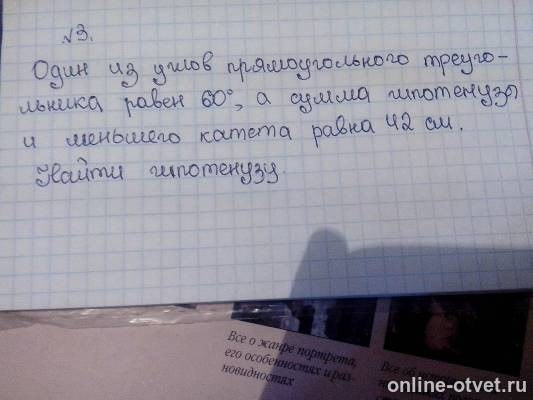 №3.
Один из углов прямоугольного треуго-
льника равен 60°, а сумма гипотенузы
и меньшего катета равна 42 см.
Найти гипотенузу.
Все о жанре портрета,
его особенностях и раз-
новидностях
Все об
online-otvet.ru